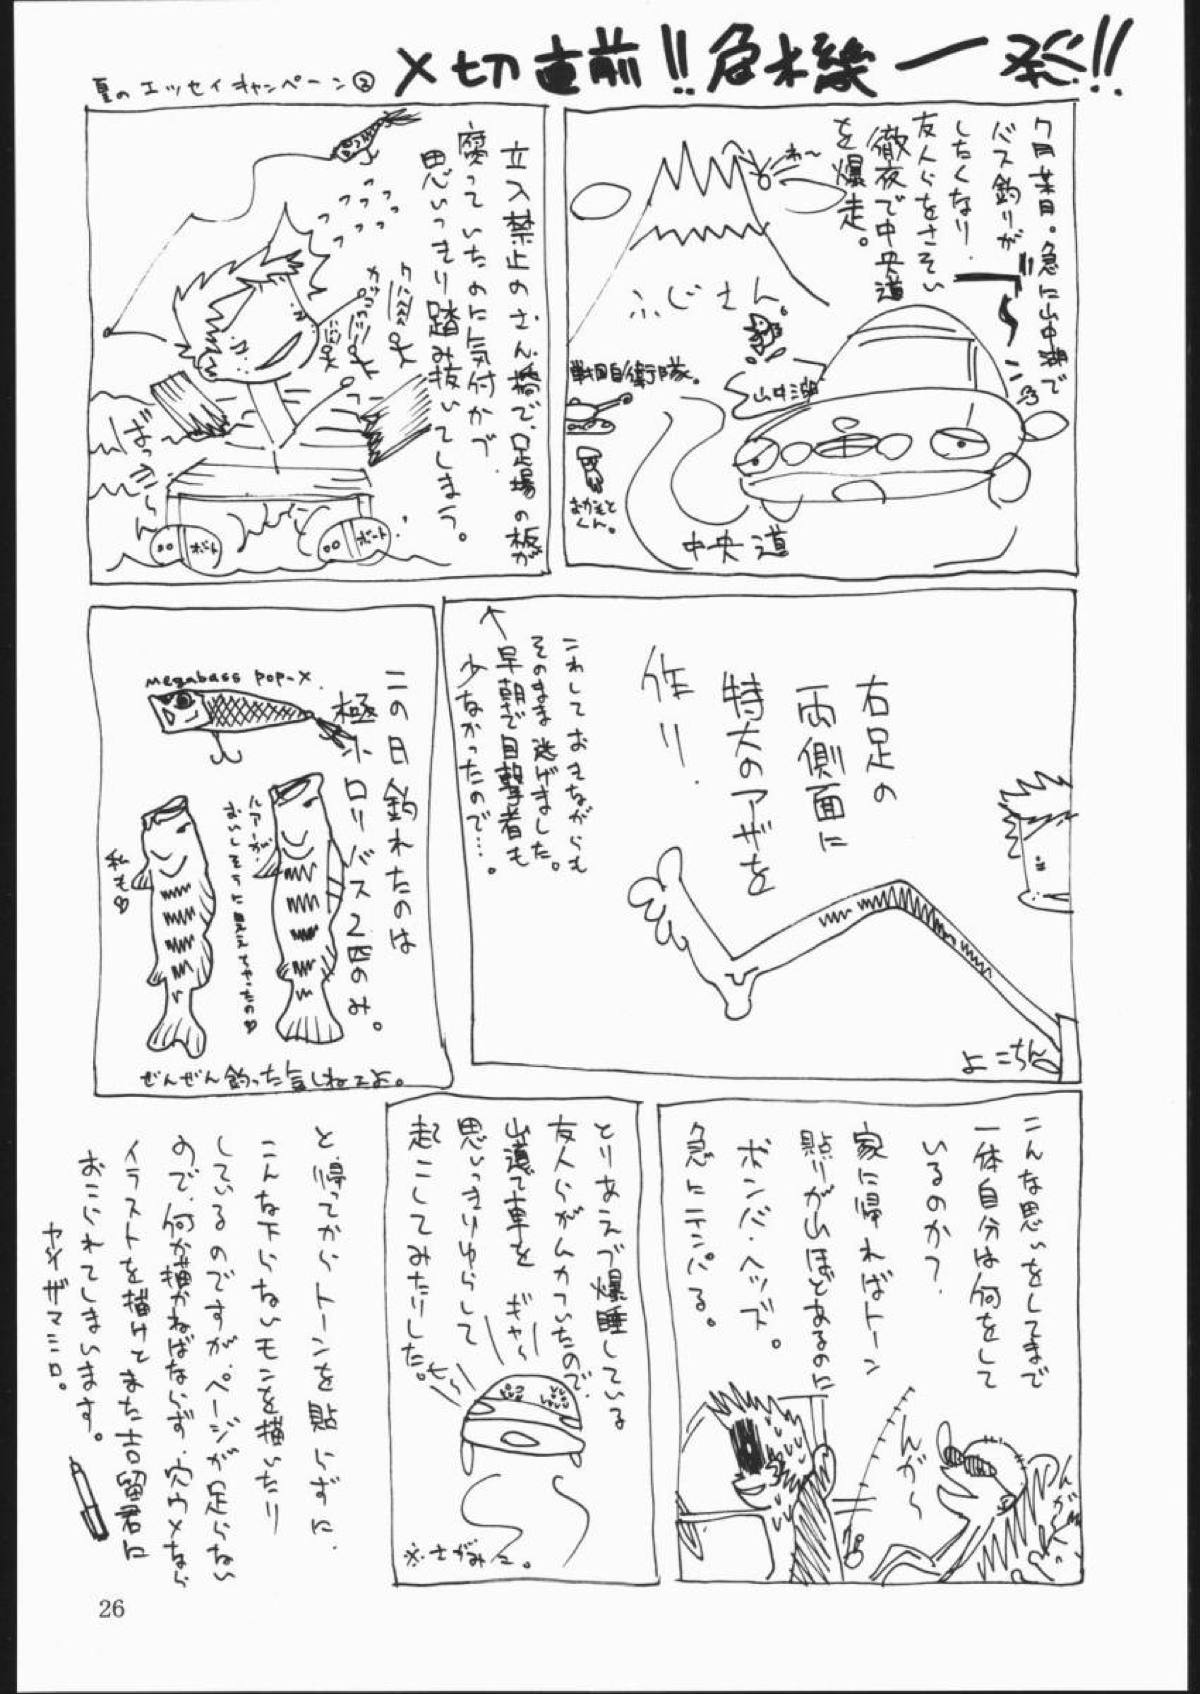 夏のエッセイキャンペーン②
〆切直前!!危機一発!!
7月某日。急に山中湖で
バス釣りが
したくなり
友人らをさそい
徹夜で中央道
を爆走。
わ〜
ふじさん
山中湖
戦国自衛隊。
中央道
立入禁止のさん橋で、足場の板が
腐っていたのに気付かず
思いっきり踏み抜いてしまう。
ボート
ボート
右足の
両側面に
特大のアザを
作り
こわしておきながらも
そのまま逃げました。
早朝で目撃者も
少なかったので…。
よこちん
この日釣れたのは
極小ロリバス2匹のみ。
megabass pop-x
ルアーが
おいしそうに見えちゃったの♡
私も♡
ぜんぜん釣った気しねェよ。
こんな思いをしてまで
一体自分は何をして
いるのか?
家に帰ればトーン
貼りが山ほどあるのに
ボンバ・ヘッズ。
急にテンパる。
んが〜
とりあえず爆睡している
友人らがムカついたので
山道で車を
思いっきりゆらして
起こしてみたりした。
ギャ〜
も〜
※さがみこ。
と、帰ってからトーンを貼らずに
こんな下らないモンを描いたり
しているのですが、ページが足らない
ので、何か描かねばならず、穴ウメなら
イラストを描けとまた吉留君に
おこられてしまいます。
ヤイザマシロ。
26